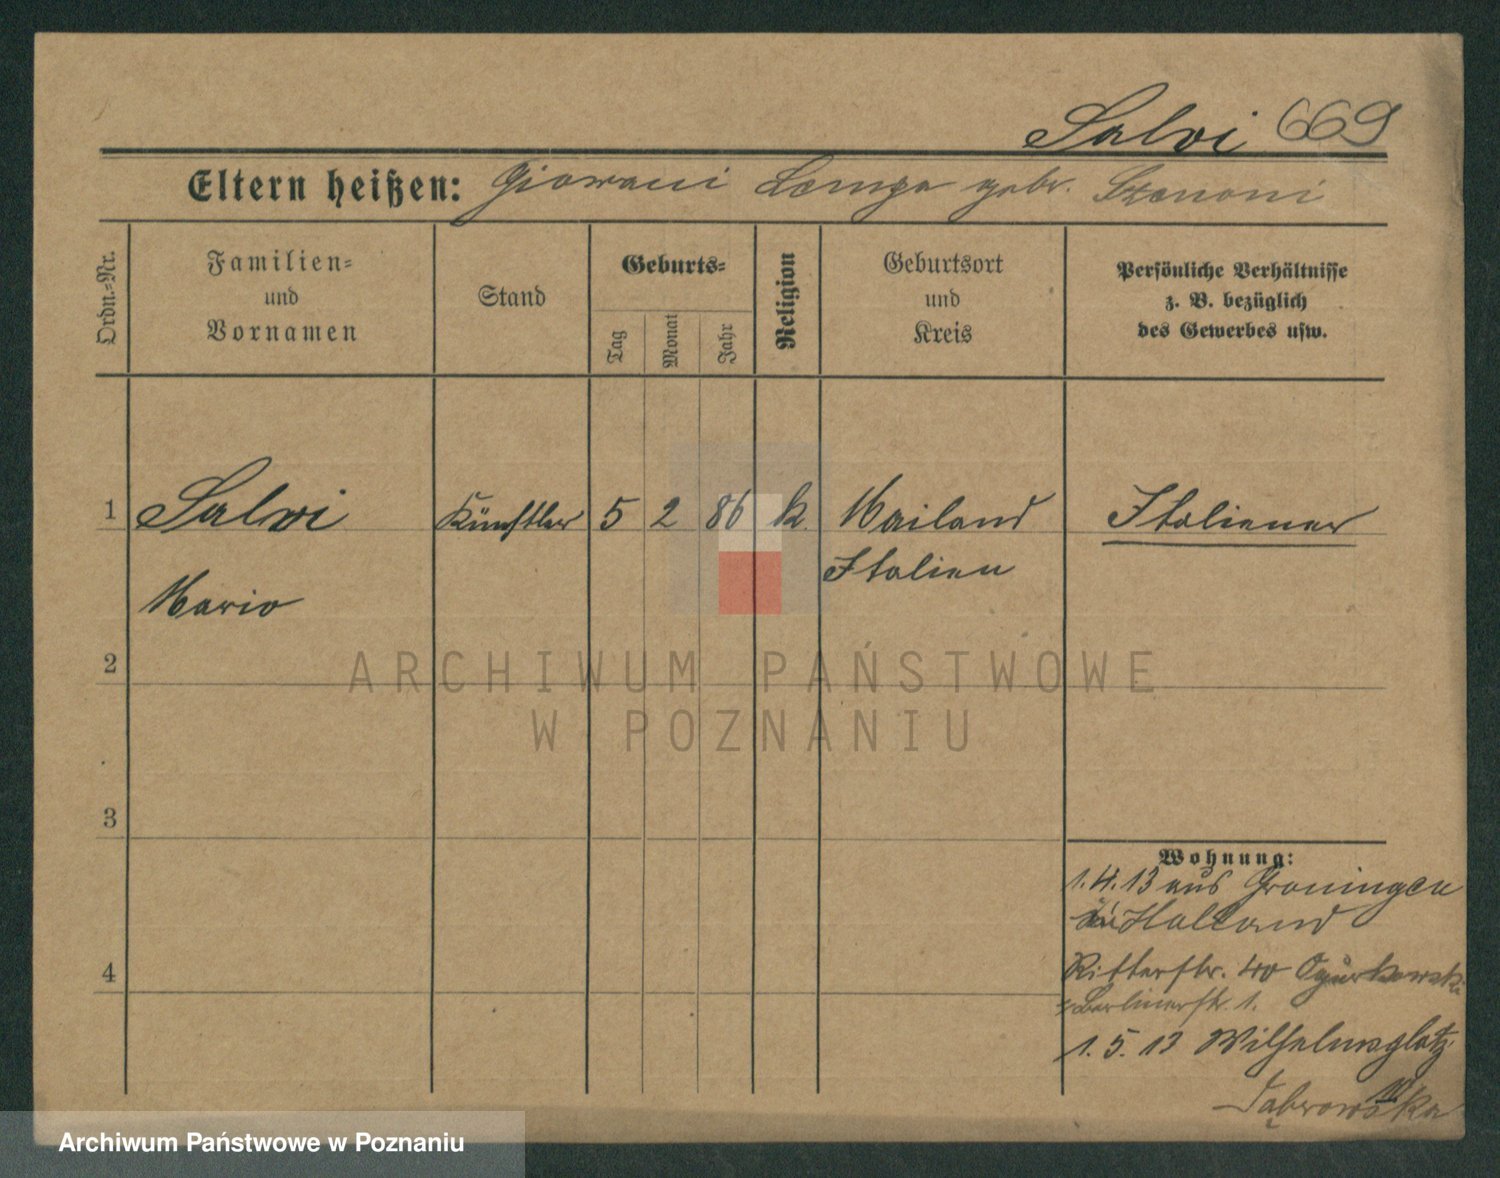 Salvi 669
Eltern heißen: Giovani geb.
Ordn.-Nr.
Familien-
und
Vornamen
Stand
Geburts-
Tag
Monat
Jahr
Religion
Geburtsort
und
Kreis
Persönliche Verhältnisse
z. B. bezüglich
des Gewerbes usw.
1 Salvi Künstler 5 2 86 k. Mailand Italiener
Italien
Mario
2
3
4
Wohnung:
1.4.13 aus Groningen
in Holland
Ritterstr. 40 Ogurkowski
Berlinerstr. 1.
1.5.13 Wilhelmsplatz
Dąbrowska
ARCHIWUM PAŃSTWOWE
W POZNANIU
Archiwum Państwowe w Poznaniu